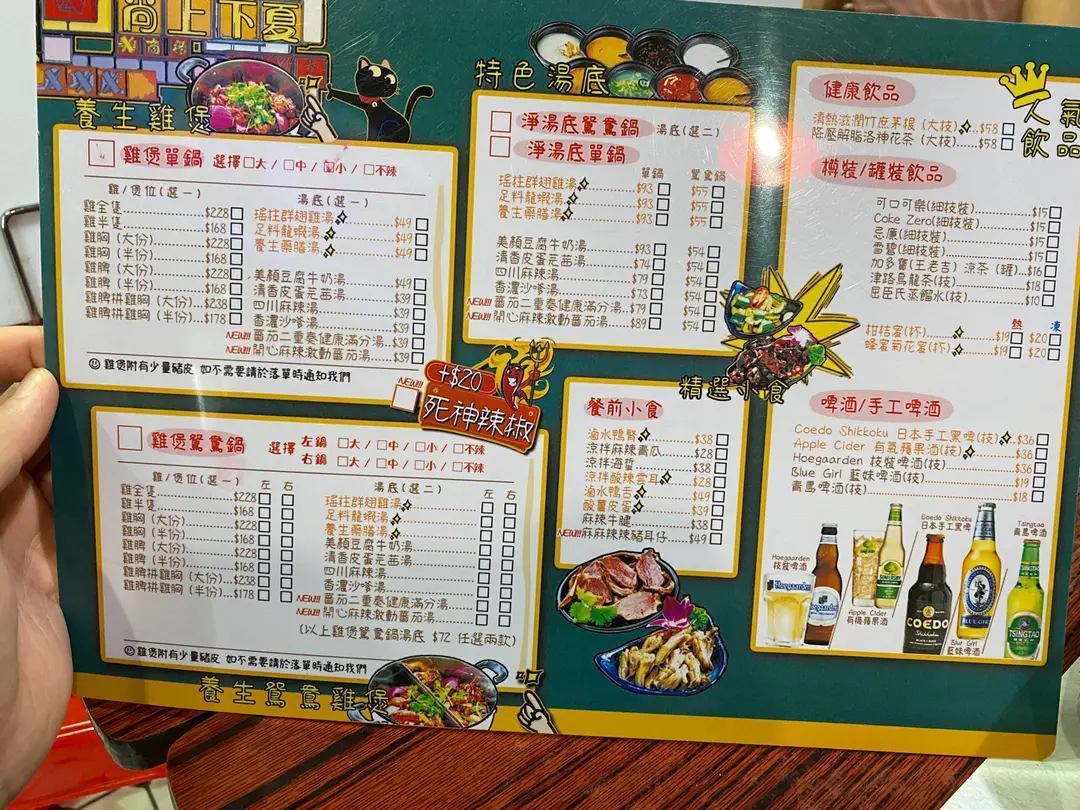 尚上下夏
XXX
養生雞煲
雞煲單鍋 選擇 大 / 中 / 小 / 不辣
雞/煲位(選一) 湯底(選一)
雞全隻 $228
雞半隻 $168
雞胸 (大份) $228
雞胸 (半份) $168
雞脾 (大份) $228
雞脾 (半份) $168
雞脾拼雞胸 (大份) $238
雞脾拼雞胸 (半份) $178
瑤柱群翅雞湯 $49
足料龍蝦湯 $49
養生藥膳湯 $49
美顏豆腐牛奶湯 $49
清香皮蛋芫茜湯 $39
四川麻辣湯 $39
香濃沙嗲湯 $39
NEW!!! 蕃茄二重奏健康滿分湯 $39
NEW!!! 開心麻辣激動蕃茄湯 $39
雞煲附有少量豬皮 如不需要請於落單時通知我們
NEW!!! +$20
死神辣椒
雞煲鴛鴦鍋 選擇 左鍋 大 / 中 / 小 / 不辣
右鍋 大 / 中 / 小 / 不辣
雞/煲位(選一) 左 右 湯底(選二) 左 右
雞全隻 $228
雞半隻 $168
雞胸 (大份) $228
雞胸 (半份) $168
雞脾 (大份) $228
雞脾 (半份) $168
雞脾拼雞胸 (大份) $238
雞脾拼雞胸 (半份) $178
瑤柱群翅雞湯
足料龍蝦湯
養生藥膳湯
美顏豆腐牛奶湯
清香皮蛋芫茜湯
四川麻辣湯
香濃沙嗲湯
NEW!!! 蕃茄二重奏健康滿分湯
NEW!!! 開心麻辣激動蕃茄湯
(以上雞煲鴛鴦鍋湯底 $72 任選兩款)
雞煲附有少量豬皮 如不需要請於落單時通知我們
養生鴛鴦雞煲
特色湯底
淨湯底鴛鴦鍋 湯底(選二)
淨湯底單鍋
單鍋 鴛鴦鍋
瑤柱群翅雞湯 $93 $55
足料龍蝦湯 $93 $55
養生藥膳湯 $93 $55
美顏豆腐牛奶湯 $93 $54
清香皮蛋芫茜湯 $74 $54
四川麻辣湯 $79 $54
香濃沙嗲湯 $73 $54
NEW!!! 蕃茄二重奏健康滿分湯 $79 $54
NEW!!! 開心麻辣激動蕃茄湯 $89 $54
精選小食
餐前小食
滷水鴨腎 $38
涼拌麻辣青瓜 $28
涼拌海蜇 $38
涼拌酸辣雲耳 $28
滷水鴨舌 $49
酸薑皮蛋 $39
麻辣牛腱 $38
NEW!!! 麻麻辣辣豬耳仔 $49
人氣
飲品
健康飲品
清熱滋潤竹庶茅根 (大枝) $58
降壓解脂洛神花茶 (大枝) $58
樽裝/罐裝飲品
可口可樂(細枝裝) $15
Coke Zero(細枝裝) $15
忌廉(細枝裝) $15
雪碧(細枝裝) $15
加多寶(王老吉) 涼茶 (罐) $16
津路烏龍茶(枝) $18
屈臣氏蒸餾水(枝) $10
熱 凍
柑桔蜜(杯) $19 $20
蜂蜜菊花蜜(杯) $19 $20
啤酒/手工啤酒
Coedo Shikkoku 日本手工黑啤(枝) $36
Apple Cider 有氣蘋果酒(枝) $36
Hoegaarden 枝裝啤酒(枝) $36
Blue Girl 藍妹啤酒(枝) $19
青島啤酒(枝) $18
Hoegaarden
枝裝啤酒
Apple Cider
有機蘋果酒
Coedo Shikkoku
日本手工黑啤
Blue Girl
藍妹啤酒
Tsingtao
青島啤酒
Hoegaarden
SOMERSBY
COEDO
Shikkoku
BLUE GIRL
TSINGTAO